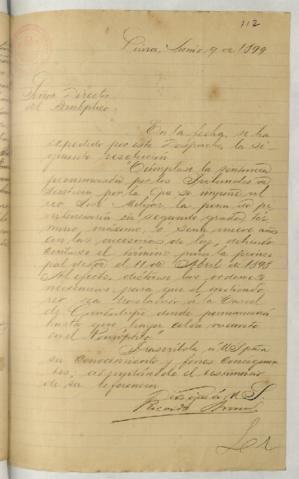 112
Lima, Junio 7 de 1899
Señor Director
del Panóptico.
En la fecha, se ha
expedido por este Despacho la si-
guiente resolución
"Cúmplase la sentencia
pronunciada por los Tribunales de
Justicia por la que se impone al
reo José la pena de pe-
nitenciaría en segundo grado, tér-
mino máximo, o sean nueve años
con las accesorias de ley, debiendo
contarse el término para la princi-
pal desde el 11 de Abril de 1898
Al efecto, díctense las órdenes
necesarias para que el indicado
reo sea trasladado a la Carcel
de Guadalupe donde permanecerá
hasta que haya celda vacante
en el Panóptico
Trascríbola á US para
su conocimiento y fines consiguien-
tes, adjuntándole el testimonio
de su referencia
Dios guíe á US.
Ricardo